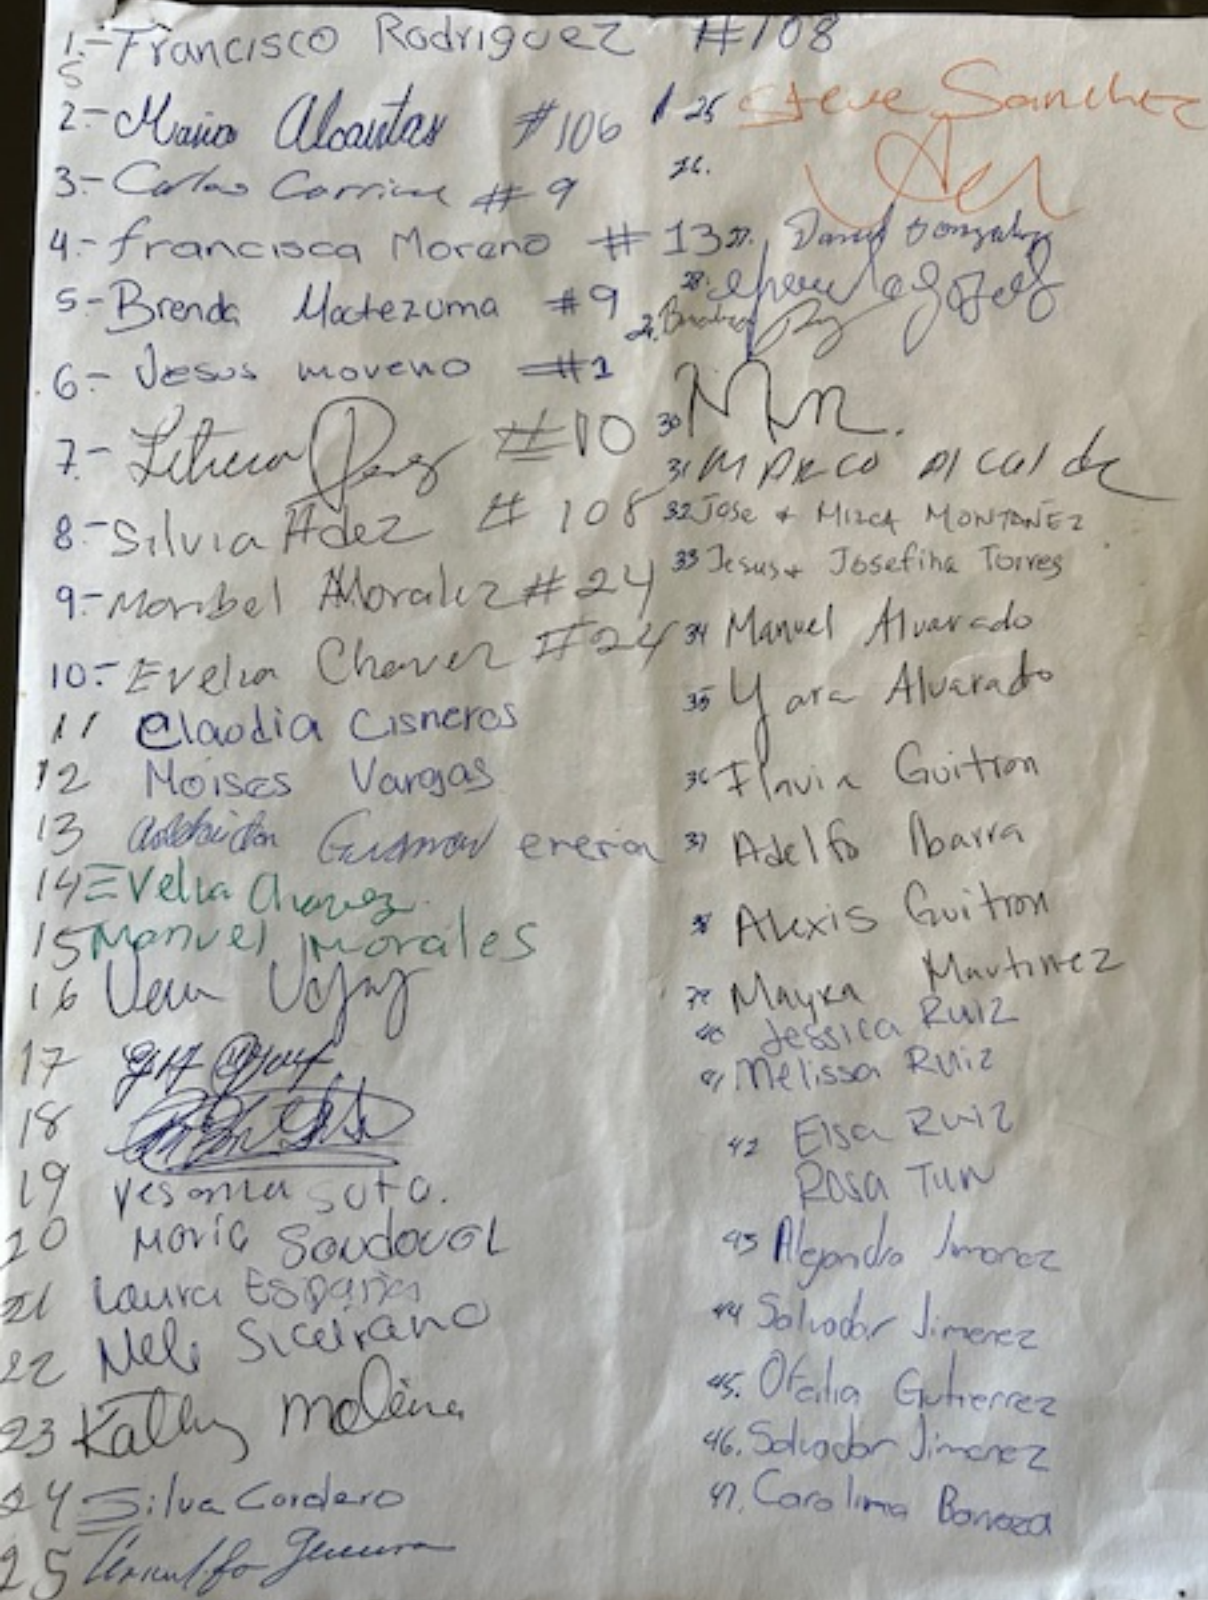 1.- Francisco Rodriguez #108
2.- Maria Alcantar #106
3.- Carlos #9
4.- francisca Moreno #13
5.- Brenda Moctezuma #9
6.- Jesus moreno #1
7.- Leticia Perez #10
8.- Silvia Hdez #108
9.- Maribel Moralez #24
10.- Evelia Chavez #24
11 Claudia Cisneros
12 Moises Vargas
13
14 Evelia Chavez
15 Manuel Morales
16
17
18
19 Yesenia Soto.
20 Maria Sandoval
21 Laura España
22 Neli
23 Kathy Molina
24 Silva Cordero
25
25 Steve Sanchez
26.
27. David Gonzalez
28.
29.
30
31 MARCO Alcalde
32 Jose + MIRCA MONTAÑEZ
33 Jesus + Josefina Torres
34 Manuel Alvarado
35 Yara Alvarado
36 Flavia Guitron
37 Adelfo Ibarra
38 Alexis Guitron
39 Mayra Martinez
40 Jessica Ruiz
41 Melissa Ruiz
42 Elsa Ruiz
Rosa Tun
43 Alejandra Jimenez
44 Salvador Jimenez
45. Ofelia Gutierrez
46. Salvador Jimenez
47. Carolina Barraza